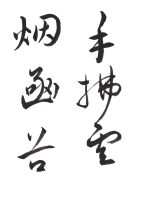 手拂雲
烟凾谷